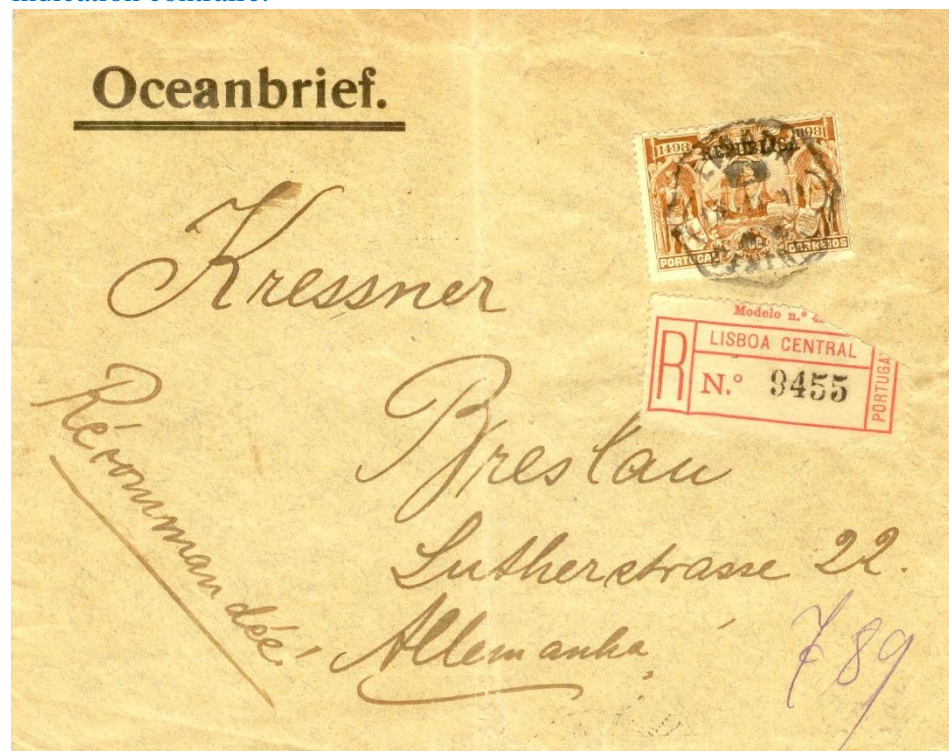 indication contraire.
Oceanbrief.
1498 1898
REPUBLICA
PORTUGAL CORREIOS
Kressner
Modelo n.º
R LISBOA CENTRAL
N.º 9455
PORTUGAL
Récommandée!
Breslau
Lutherstrasse 22.
Allemanha
789